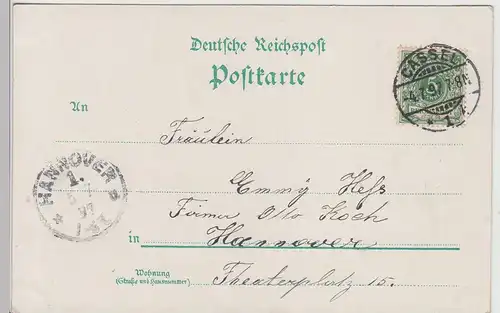 Deutsche Reichspost
Postkarte
CASSEL
1
An
Fräulein
HANNOVER
1.
97
Emmy Hess
Firma Otto Koch
in Hannover
Wohnung
(Straße und Hausnummer)
Theaterplatz 15.